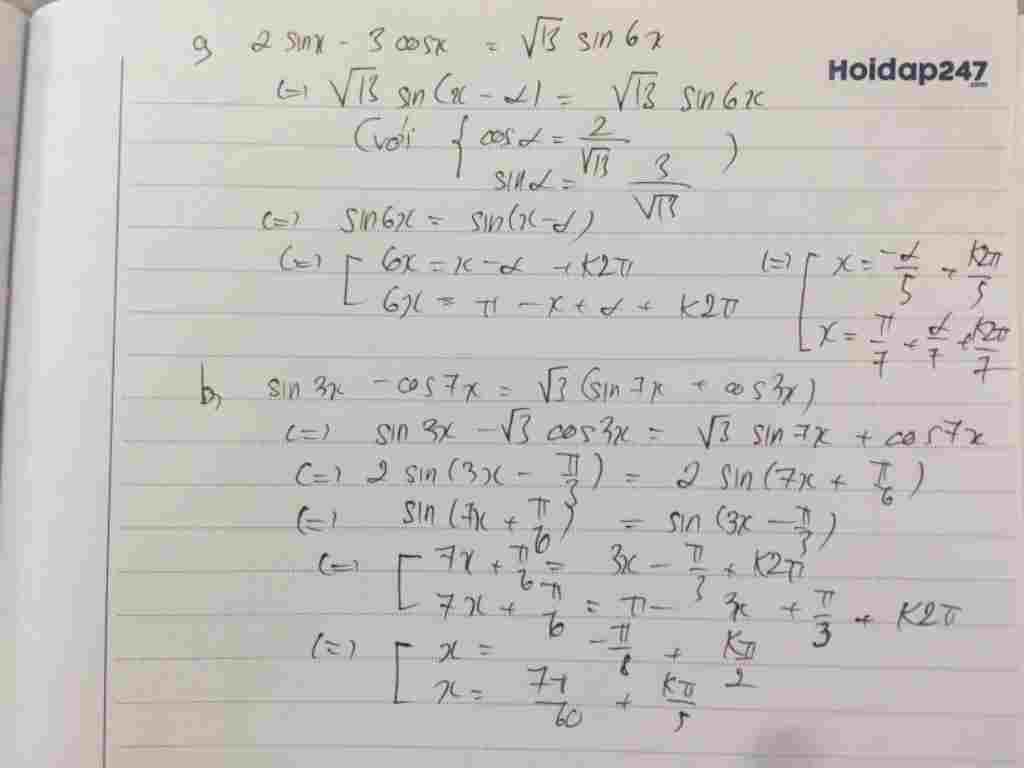 g 2 sinx - 3 cosx = √13 sin 6x
Hoidap247
.com
(=) √13 sin(x - α) = √13 sin6x
(với { cosα = 2/√13
sinα = 3/√13 )
(=) sin6x = sin(x-α)
(=) [ 6x = x - α + k2π
6x = π - x + α + k2π
(=) [ x = -α/5 + k2π/5
x = π/7 + α/7 + k2π/7
b, sin 3x - cos 7x = √3 (sin 7x + cos 3x)
(=) sin 3x - √3 cos3x = √3 sin 7x + cos7x
(=) 2 sin (3x - π/3) = 2 sin (7x + π/6)
(=) sin (7x + π/6) = sin (3x - π/3)
(=) [ 7x + π/6 = 3x - π/3 + k2π
7x + π/6 = π - 3x + π/3 + k2π
(=) [ x = -π/8 + kπ/2
x = 7π/60 + kπ/5